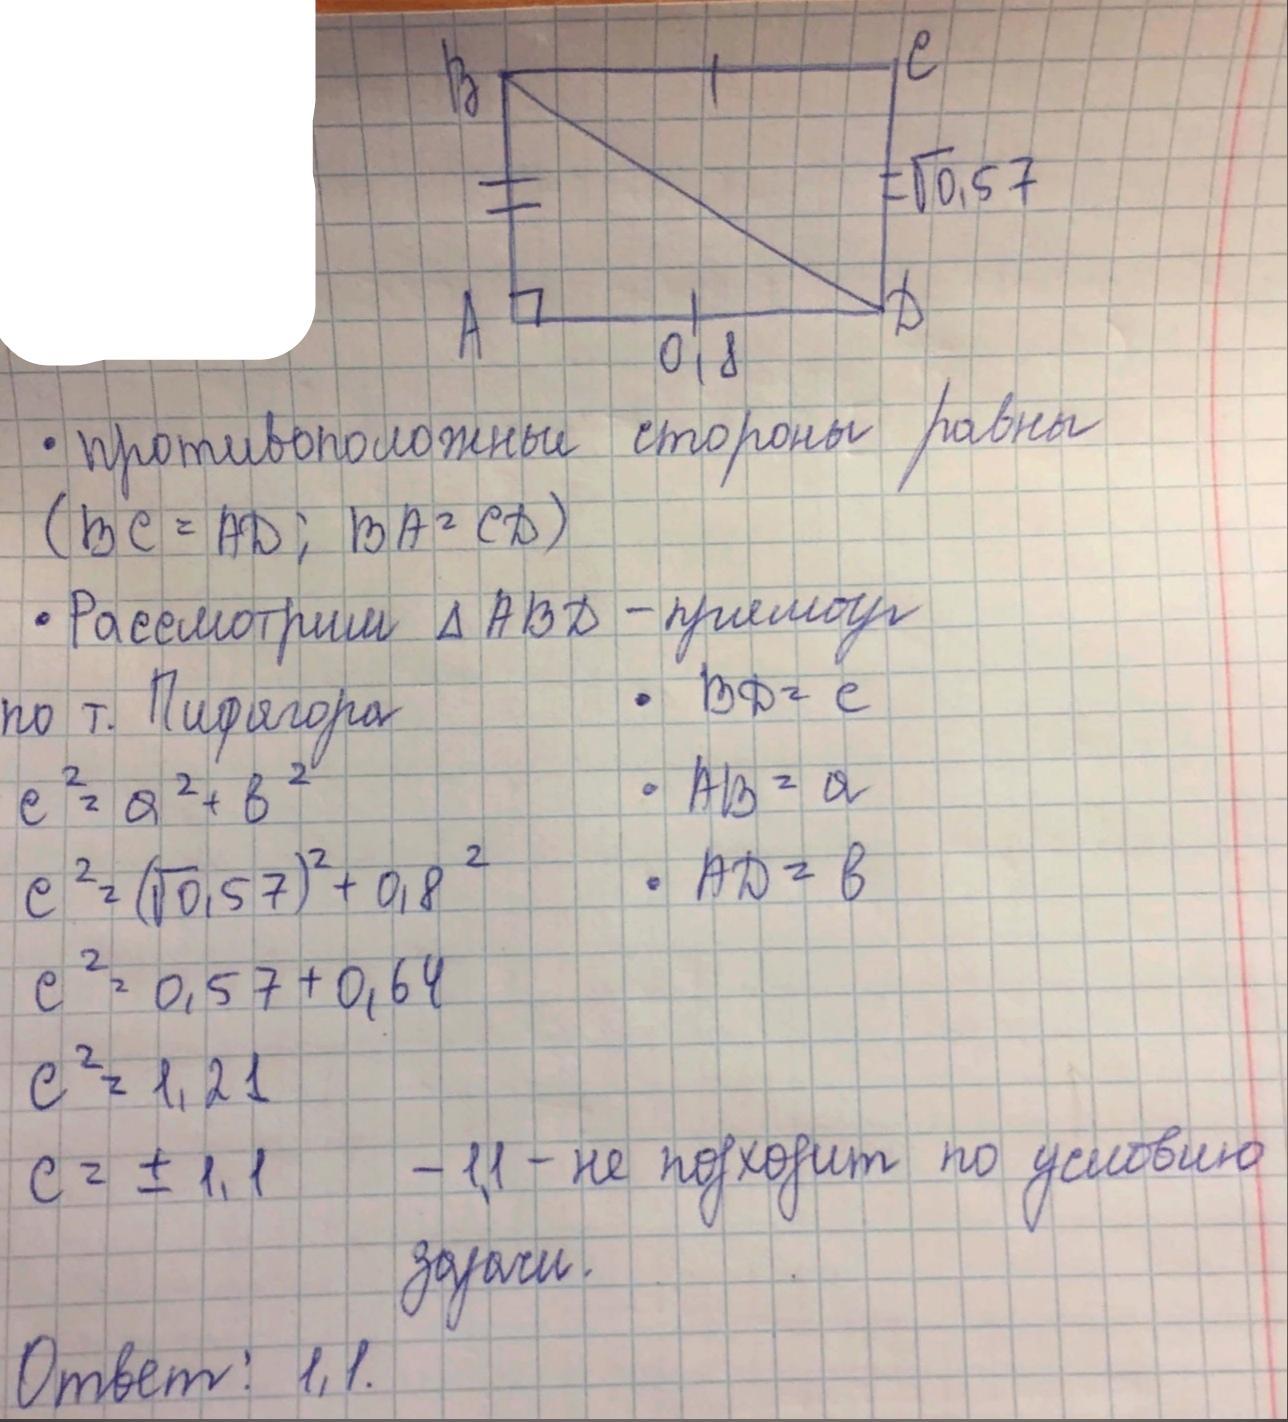 B
C
√0,57
A
D
0,8
• противоположные стороны равны
(BC = AD; BA = CD)
• Рассмотрим Δ ABD – прямоуг
по т. Пифагора • BD = c
c² = a² + b² • AB = a
c² = (√0,57)² + 0,8² • AD = b
c² = 0,57 + 0,64
c² = 1,21
c = ± 1,1 – 1,1 – не подходит по условию
задачи.
Ответ: 1,1.